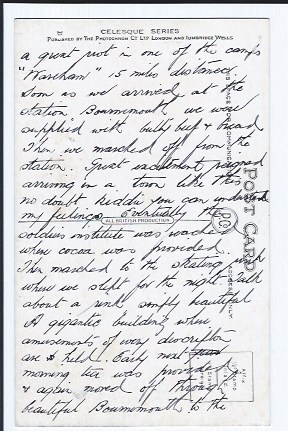 CELESQUE SERIES
PUBLISHED BY THE PHOTOCHROM CO LTD LONDON AND TUNBRIDGE WELLS
a great riot in one of the camps
"Wareham" 15 miles distance
Soon as we arrived at the
station, Bournemouth we were
supplied with bully beef & bread
Then we marched off from the
station. Great excitement reigned
arriving in a town like this
no doubt kiddie you can understand
my feelings. Eventually the
soldiers institute was reached
where cocoa was provided
Then marched to the skating rink
where we slept for the night. Talk
about a rink simply beautiful
A gigantic building where
amusements of every description
are held. Early next
morning tea was provided
& again moved off through
beautiful Bournemouth to the
POST CARD
ALL BRITISH PRODUCTION